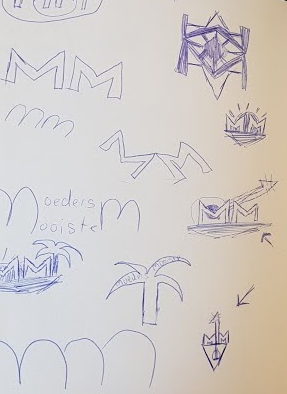 MM
mm
MM
Moeders
Mooiste M
MM
MM
MM
M M